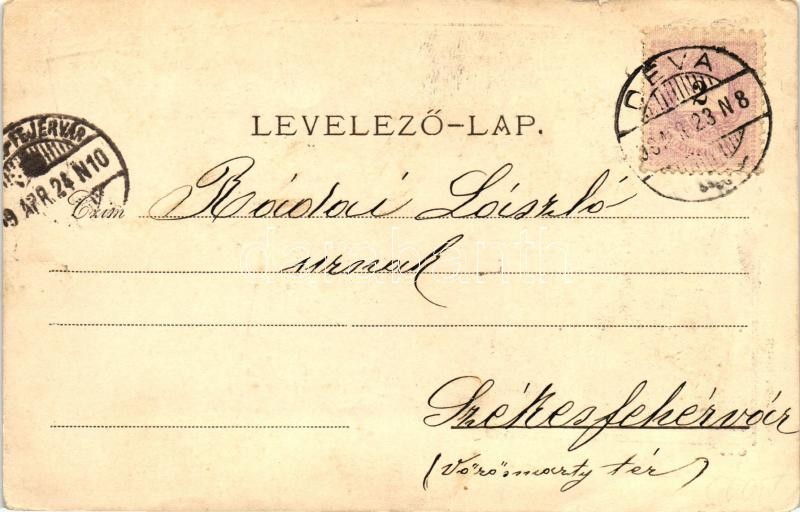 DÉVA
2
23 N 8
LEVELEZŐ-LAP.
FEJÉRVÁR
99 APR. 24 N 10
Czím
Rádai László
urnak
darabanth
Székesfehérvár
(Vörösmarty tér)